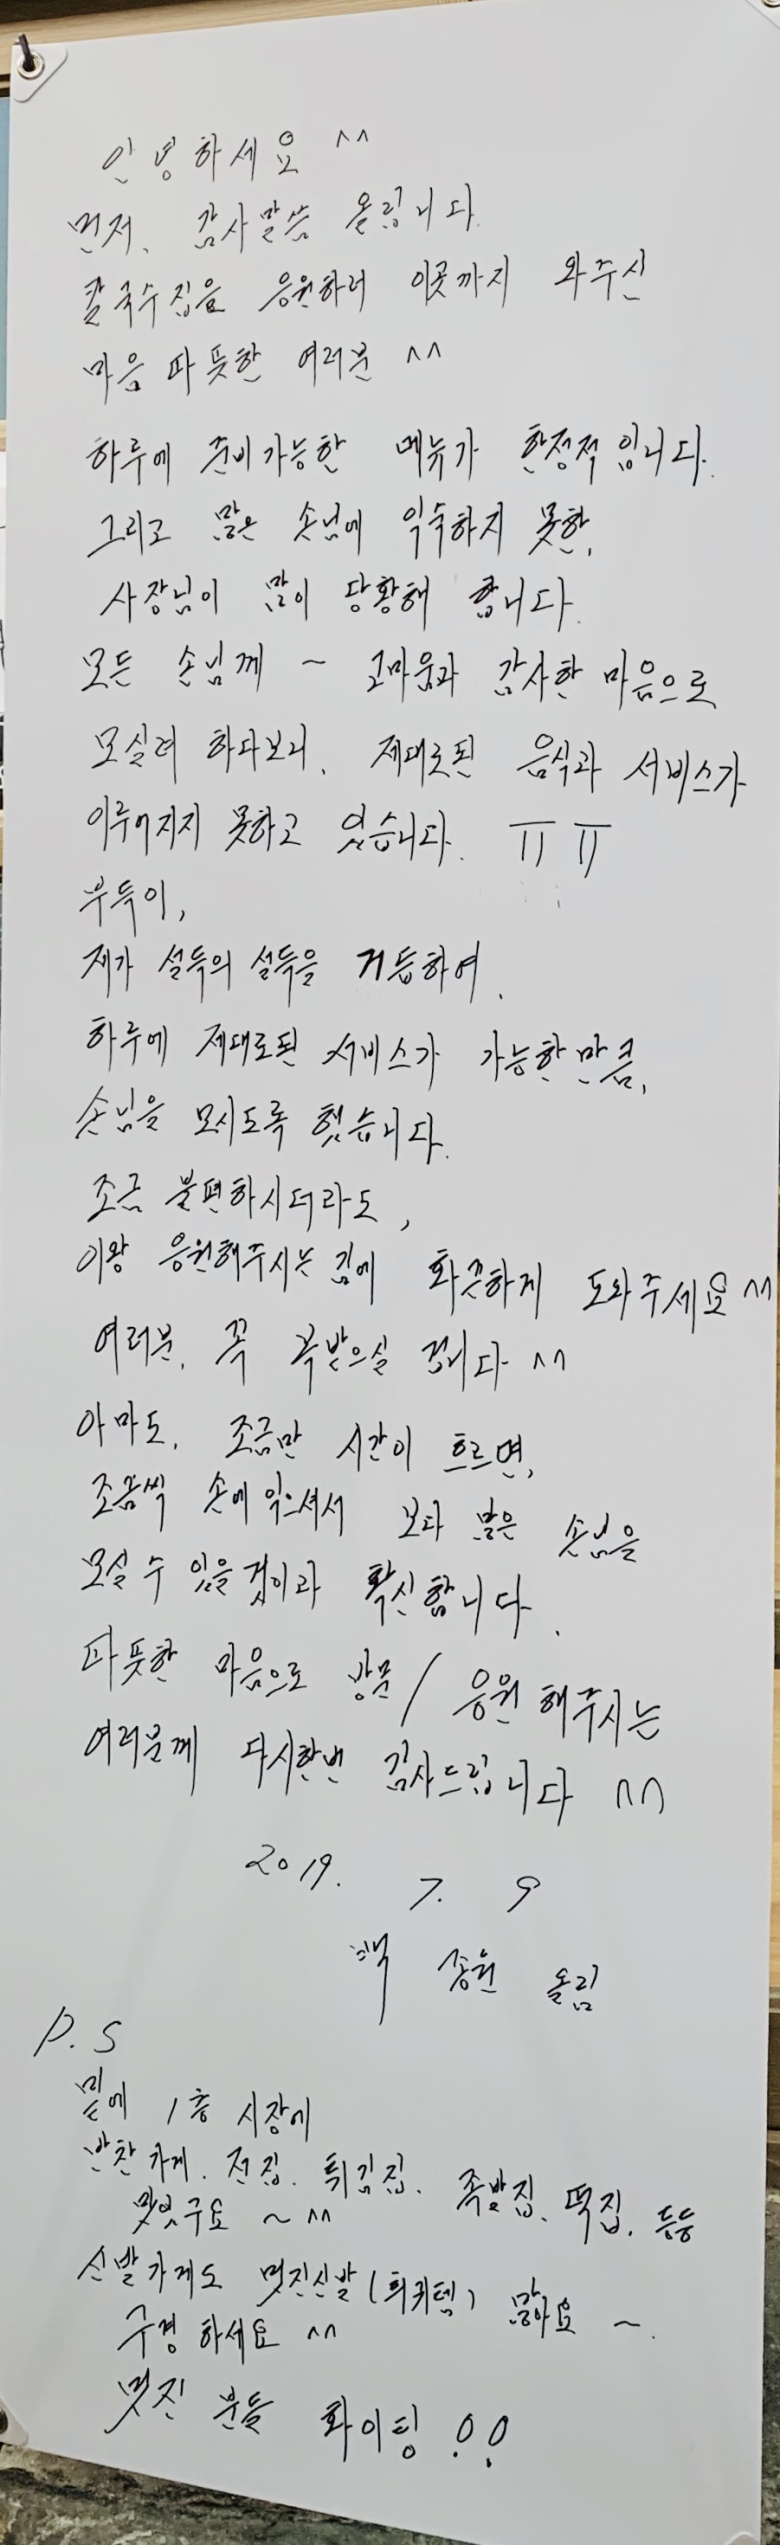 안녕하세요 ^^
먼저, 감사말씀 올립니다.
칼국수집을 응원하러 이곳까지 와주신
마음 따뜻한 여러분 ^^
하루에 준비가능한 메뉴가 한정적입니다.
그리고 많은 손님에 익숙하지 못한,
사장님이 많이 당황해 합니다.
모든 손님께 ~ 고마움과 감사한 마음으로
모실려 하다보니, 제대로된 음식과 서비스가
이루어지지 못하고 있습니다. ㅠㅠ
부득이,
제가 설득의 설득을 거듭하여,
하루에 제대로된 서비스가 가능한만큼,
손님을 모시도록 했습니다.
조금 불편하시더라도,
이왕 응원해주시는 김에 화끈하게 도와주세요 ^^
여러분, 꼭 복받으실 겁니다 ^^
아마도, 조금만 시간이 흐르면,
조금씩 손에 익으셔서 보다 많은 손님을
모실 수 있을것이라 확신합니다.
따뜻한 마음으로 방문/응원 해주시는
여러분께 다시한번 감사드립니다 ^^
2019. 7. 9
백종원 올림
P.S
밑에 1층 시장에
반찬가게. 전집. 튀김집. 족발집. 떡집. 등등
맛있구요 ~ ^^
신발가게도 멋진신발(희귀템) 많아요 ~.
구경 하세요 ^^
멋진 분들 화이팅!!